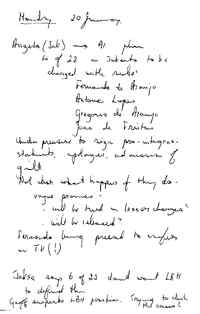 Monday 20 January
Angela (Jak) and AI phone
6 of 22 in Jakarta to be
charged with subv:
Fernando de Araujo
Antonio Lopes
Gregorio de Araujo
Joao de Freitas
Under pressure to sign pro-integras-
statements, apologies, admission of
guilt
Not clear what happens if they do -
vague promises:
- will be tried on lesser charges"
- will be released"
Fernando being pressed to confess
on TV (!)
says 6 of 22 dont want LBH
to defend them
LBH position. Trying to check